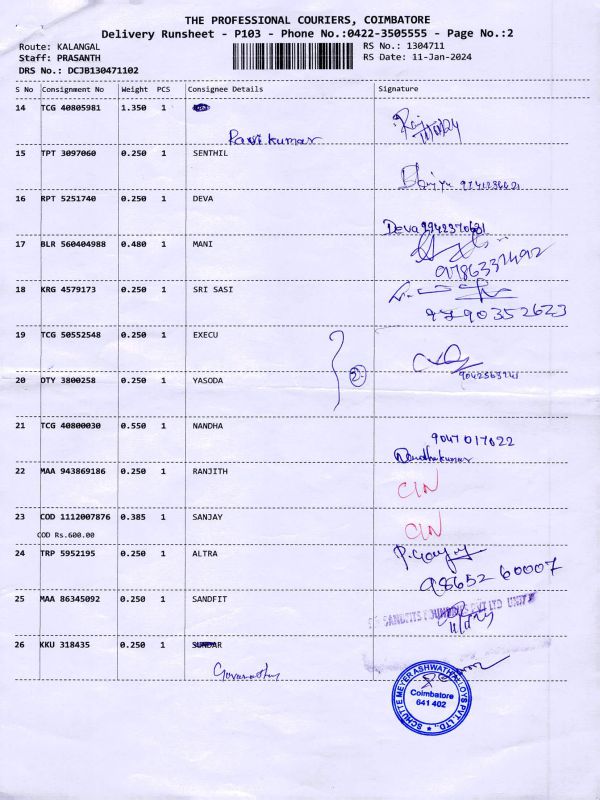 THE PROFESSIONAL COURIERS, COIMBATORE
Delivery Runsheet - P103 - Phone No.:0422-3505555 - Page No.:2
Route: KALANGAL RS No.: 1304711
Staff: PRASANTH RS Date: 11-Jan-2024
DRS No.: DCJB130471102
S No Consignment No Weight PCS Consignee Details Signature
14 TCG 40805981 1.350 1
Ravi kumar
15 TPT 3097060 0.250 1 SENTHIL
16 RPT 5251740 0.250 1 DEVA
Deva 9942370681
17 BLR 560404988 0.480 1 MANI
9786337492
18 KRG 4579173 0.250 1 SRI SASI
9790352623
19 TCG 50552548 0.250 1 EXECU
2
20 DTY 3800258 0.250 1 YASODA
21 TCG 40800030 0.550 1 NANDHA
9047017822
Nandhakumar
22 MAA 943869186 0.250 1 RANJITH
CIN
23 COD 1112007876 0.385 1 SANJAY
CIN
COD Rs.600.00
24 TRP 5952195 0.250 1 ALTRA
98652 60007
25 MAA 86345092 0.250 1 SANDFIT
SANDFITS FOUNDRIES PVT LTD UNIT
26 KKU 318435 0.250 1 SUNDAR
SCHUTTE MEYER ASHWATH ALLOYS PVT. LTD.,
Coimbatore
641 402